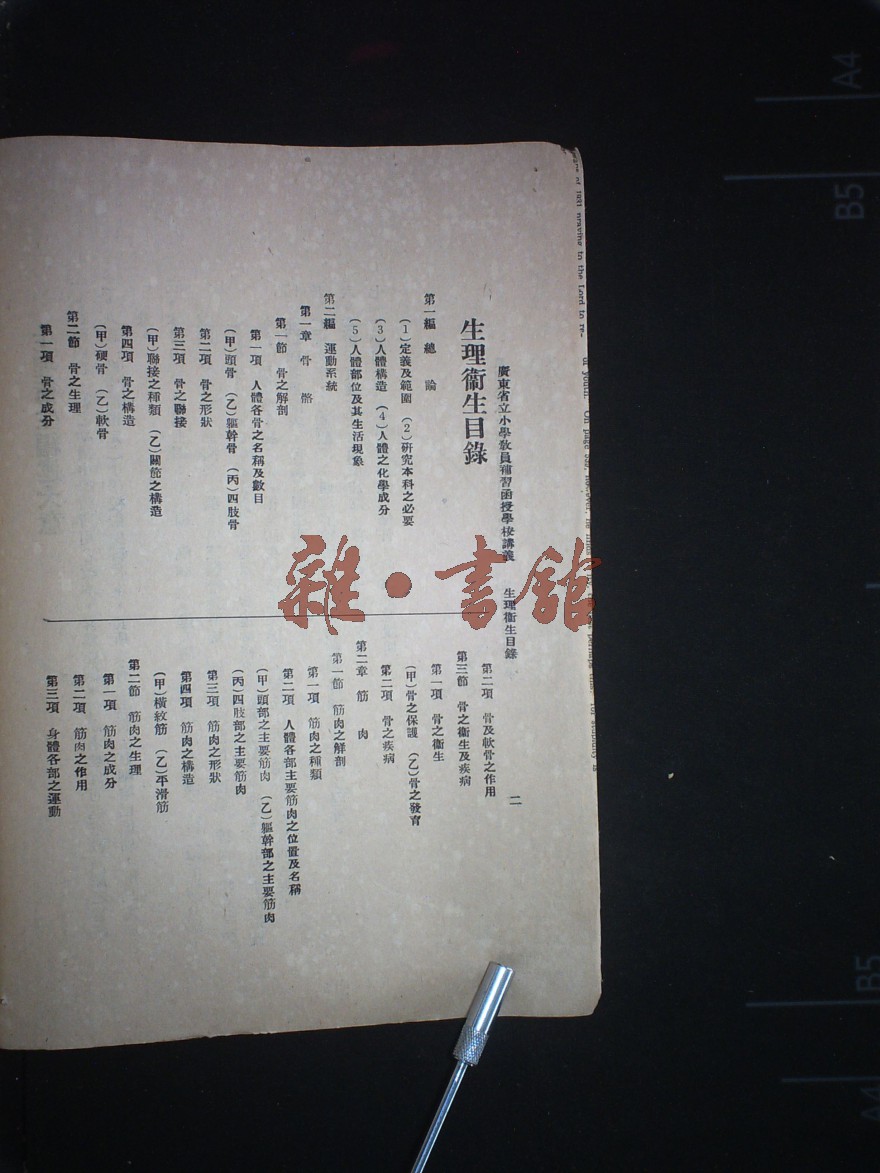 廣東省立小學敎員補習函授學校講義　生理衞生目錄　二
生理衞生目錄
第一編　總　論
（1）定義及範圍　（2）硏究本科之必要
（3）人體構造　（4）人體之化學成分
（5）人體部位及其生活現象
第二編　運動系統
第一章　骨　骼
第一節　骨之解剖
第一項　人體各骨之名稱及數目
（甲）頭骨　（乙）軀幹骨　（丙）四肢骨
第二項　骨之形狀
第三項　骨之聯接
（甲）聯接之種類　（乙）關節之構造
第四項　骨之構造
（甲）硬骨　（乙）軟骨
第二節　骨之生理
第一項　骨之成分
第二項　骨及軟骨之作用
第三節　骨之衞生及疾病
第一項　骨之衞生
（甲）骨之保護　（乙）骨之發育
第二項　骨之疾病
第二章　筋　肉
第一節　筋肉之解剖
第一項　筋肉之種類
第二項　人體各部主要筋肉之位置及名稱
（甲）頭部之主要筋肉　（乙）軀幹部之主要筋肉
（丙）四肢部之主要筋肉
第三項　筋肉之形狀
第四項　筋肉之構造
（甲）橫紋筋　（乙）平滑筋
第二節　筋肉之生理
第一項　筋肉之成分
第二項　筋肉之作用
第三項　身體各部之運動
雜·書館
A4
B5
B5
A4